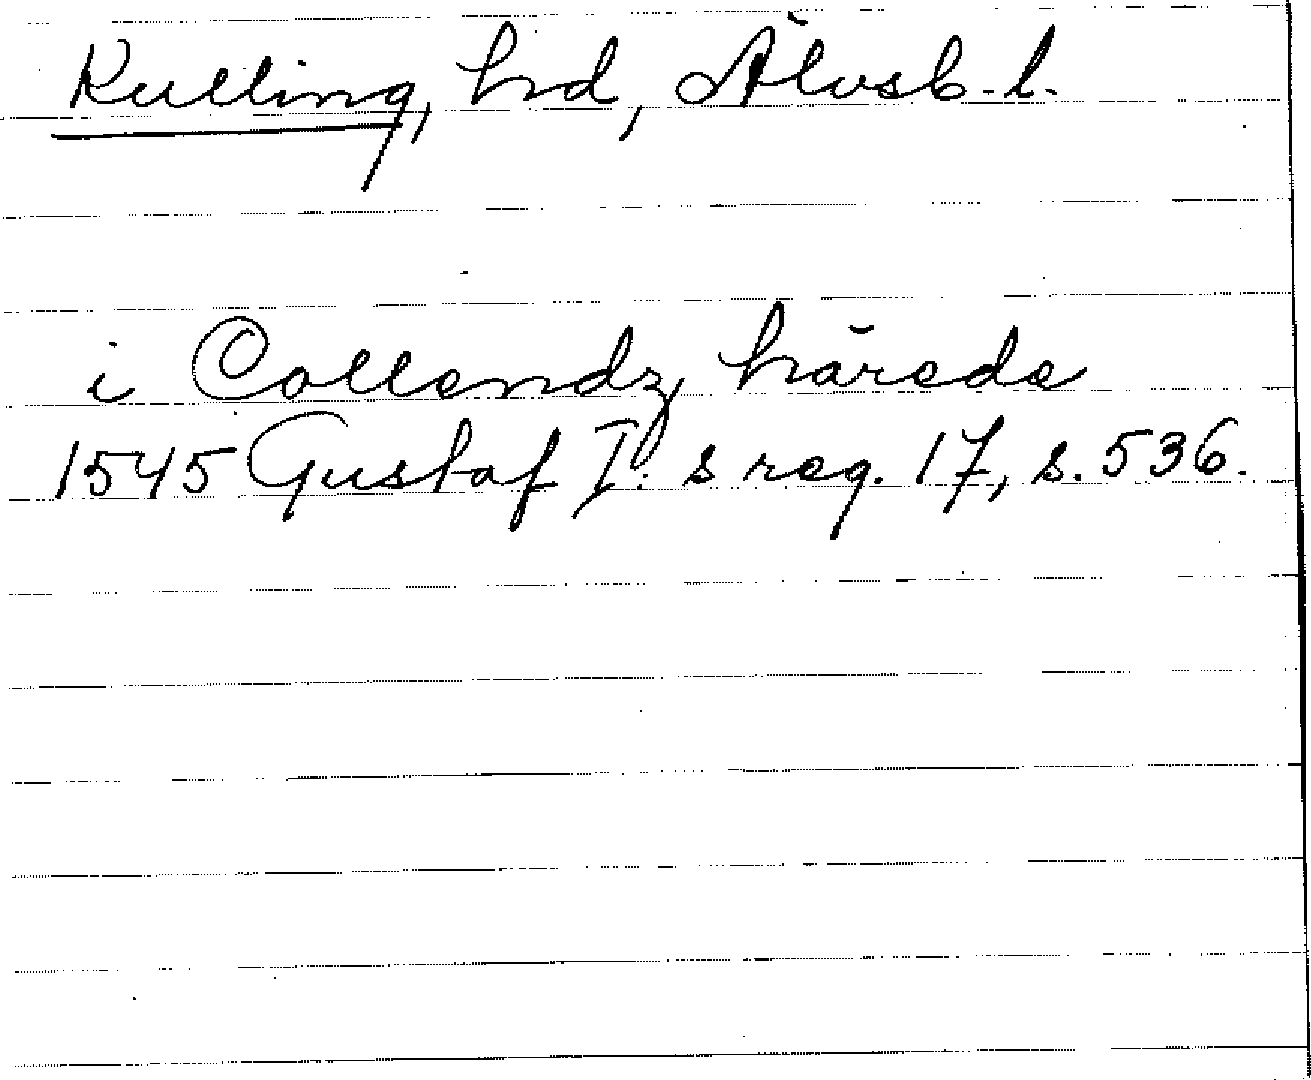 Kulling, hd, Älvsb. l.
i Collendz härede
1545 Gustaf I:s reg. 17, s. 536.